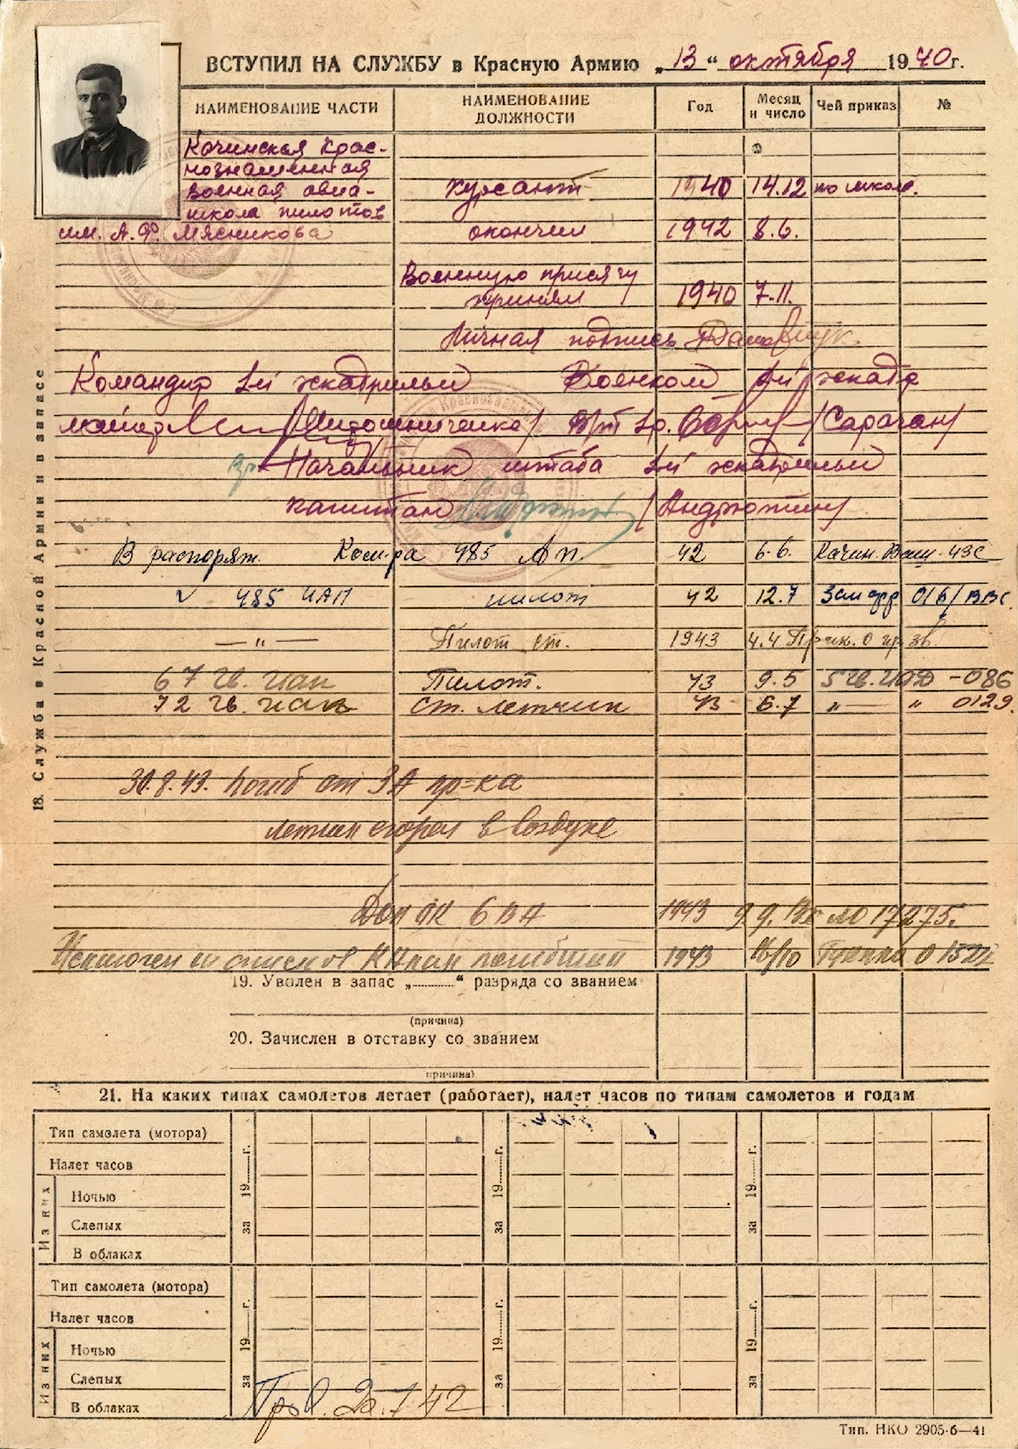 ВСТУПИЛ НА СЛУЖБУ в Красную Армию „13“ октября 1940г.
НАИМЕНОВАНИЕ ЧАСТИ НАИМЕНОВАНИЕ ДОЛЖНОСТИ Год Месяц и число Чей приказ №
Качинская Крас-
нознаменная
военная авиа- курсант 1940 14.12 по школе.
школа пилотов
им. А.Ф. Мясникова окончил 1942 8.6.
Военную присягу
принял 1940 7.11.
Личная подпись
Командир 1й эскадрильи Военком 1й эскадр
майор /Мирошниченко/ /Сарачан/
Начальник штаба 1й эскадрильи
капитан /Андрюшин/
В распоряж. Ком-ра 485 АП. 42 6.6. Качин. Ваш. 43с
485 ИАП пилот 42 12.7 016/ВВС
— „ — Пилот ст. 1943 4.4 Прик. О пр. зв.
67 гв. иап Пилот. 43 9.5 5 гв. ИАД -086
72 гв. иап Ст. летчик 43 6.7 „ — „ 0129.
18. Служба в Красной Армии и в запасе
30.8.43. погиб от ЗА пр-ка
летчик сгорел в воздухе
Дон ОК 6 ВА 1943 9.9. Вх №17275.
Исключен из списков КА как погибший 1943 16/10
19. Уволен в запас „..........“ разряда со званием
(причина)
20. Зачислен в отставку со званием
(причина)
21. На каких типах самолетов летает (работает), налет часов по типам самолетов и годам
Тип самолета (мотора) за 19......г. за 19......г. за 19......г.
Налет часов
Из них
Ночью
Слепых
В облаках
Тип самолета (мотора) за 19......г. за 19......г. за 19......г.
Налет часов
Из них
Ночью
Слепых
В облаках
Пров. 20.7.42
Тип. НКО 2905-6—41